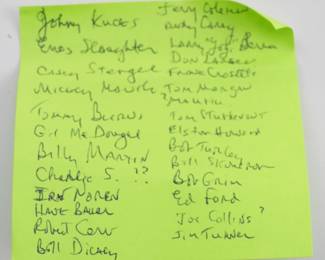 Johnny Kucks
Enos Slaughter
Casey Stengel
Mickey Mantle
Tommy Byrne
Gil McDougal
Billy Martin
Charlie S. ??
Irv Noren
Hank Bauer
Robert Cerv
Bill Dickey
Jerry Coleman
Andy Carey
Larry "Yogi" Berra
Don Larsen
Frank Crosetti
Tom Morgan
? 
Tom Sturdivant
Elston Howard
Bob Turley
Bill Skowron
Bob Grim
Ed Ford
Joe Collins ?
Jim Turner